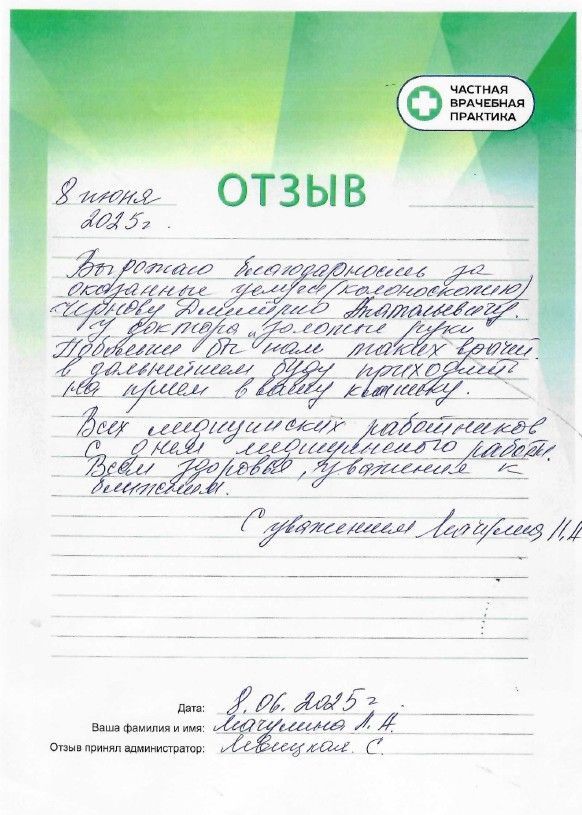 ЧАСТНАЯ
ВРАЧЕБНАЯ
ПРАКТИКА
ОТЗЫВ
8 июня
2025г.
Выражаю благодарность за
оказанные услуги (колоноскопию)
Чернову Дмитрию Анатольевичу.
У доктора "золотые руки
Побольше бы нам таких врачей.
в дальнейшем буду приходить
на прием в вашу клинику.
Всех медицинских работников
С днем медицинского работн.
Всем здоровья, уважения к
ближним.
С уважением
Дата: 8.06.2025г.
Ваша фамилия и имя: Мачулина Л. А.
Отзыв принял администратор: Левицкая. С.